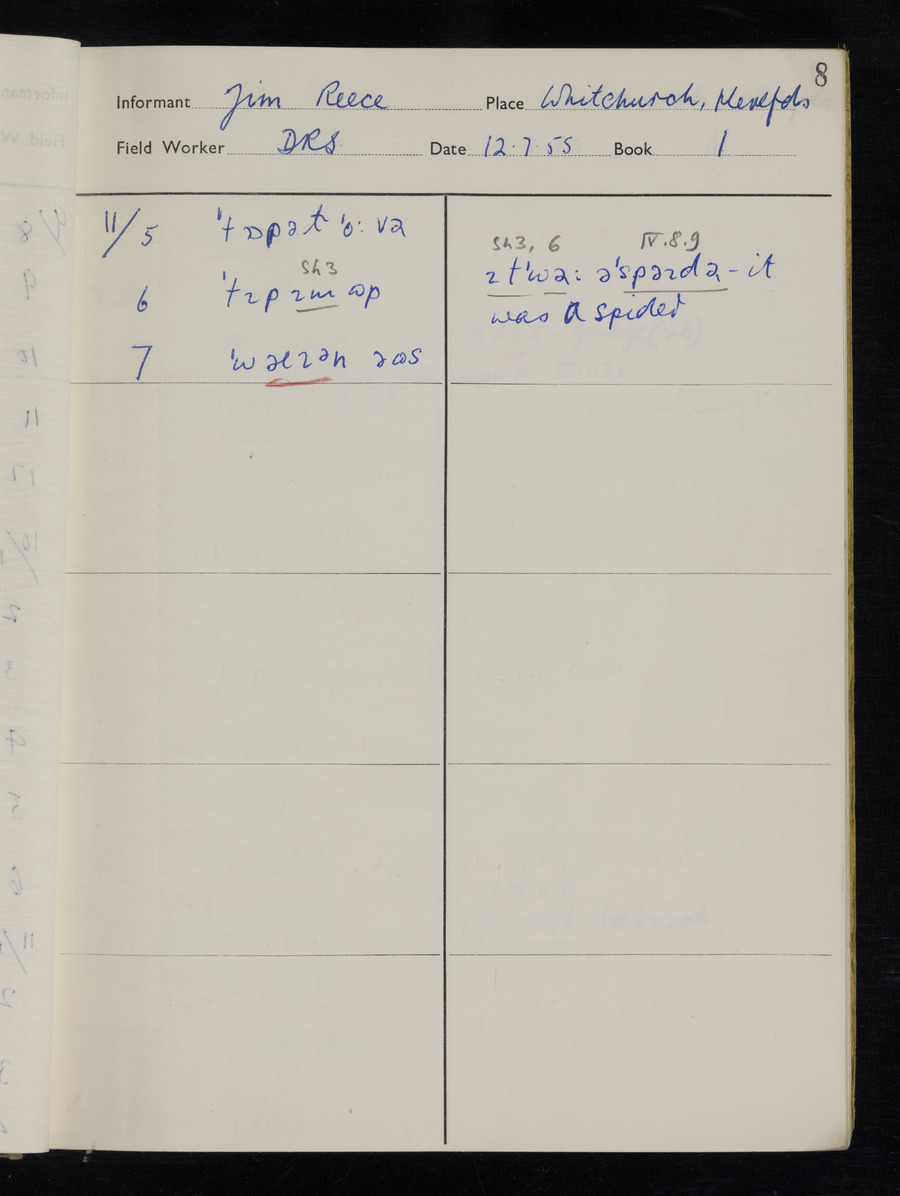 8
Informant Jim Reece Place Whitchurch, Herefds
Field Worker DRS Date 12.7.55 Book 1
11/5 ˈtɒpət ˈoːvə
Sh3
6 ˈtɪp ɪm ʊp
7
Sh3, 6 IV.8.9
ɪtˈwəː əˈspəɪdə - it
was a spider